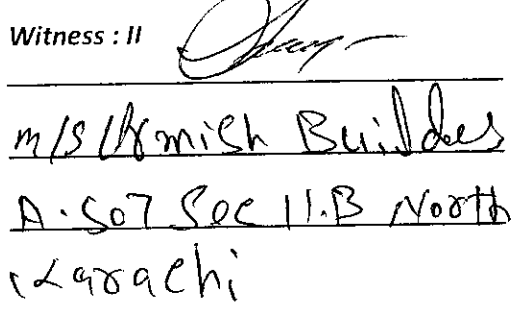 Witness : II
M/S Armish Builders
A.507 Sec 11.B North
Karachi